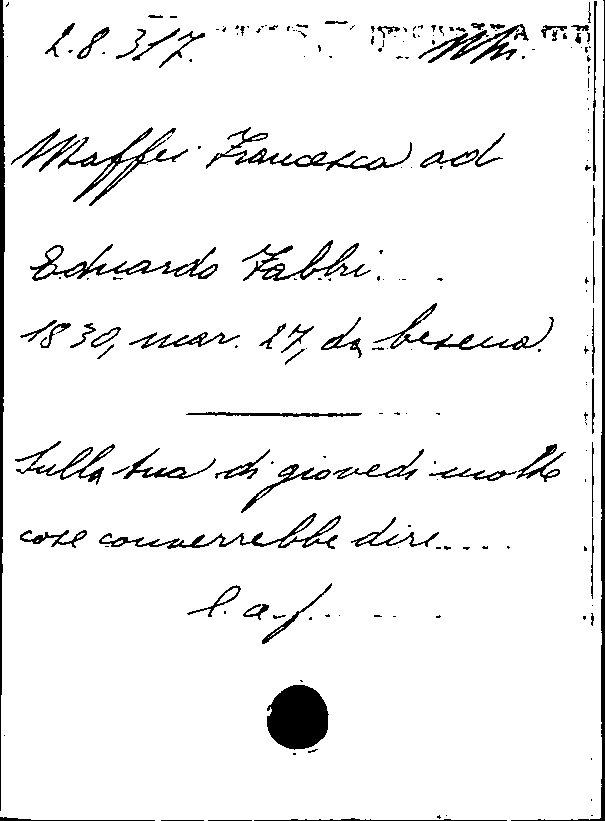 2.8.317.
Maffei Francesca ad
Eduardo Fabbri.
1830, mar. 27, da Cesena.
Sulla tua di giovedi molte
cose converrebbe dire....
l. a. f.